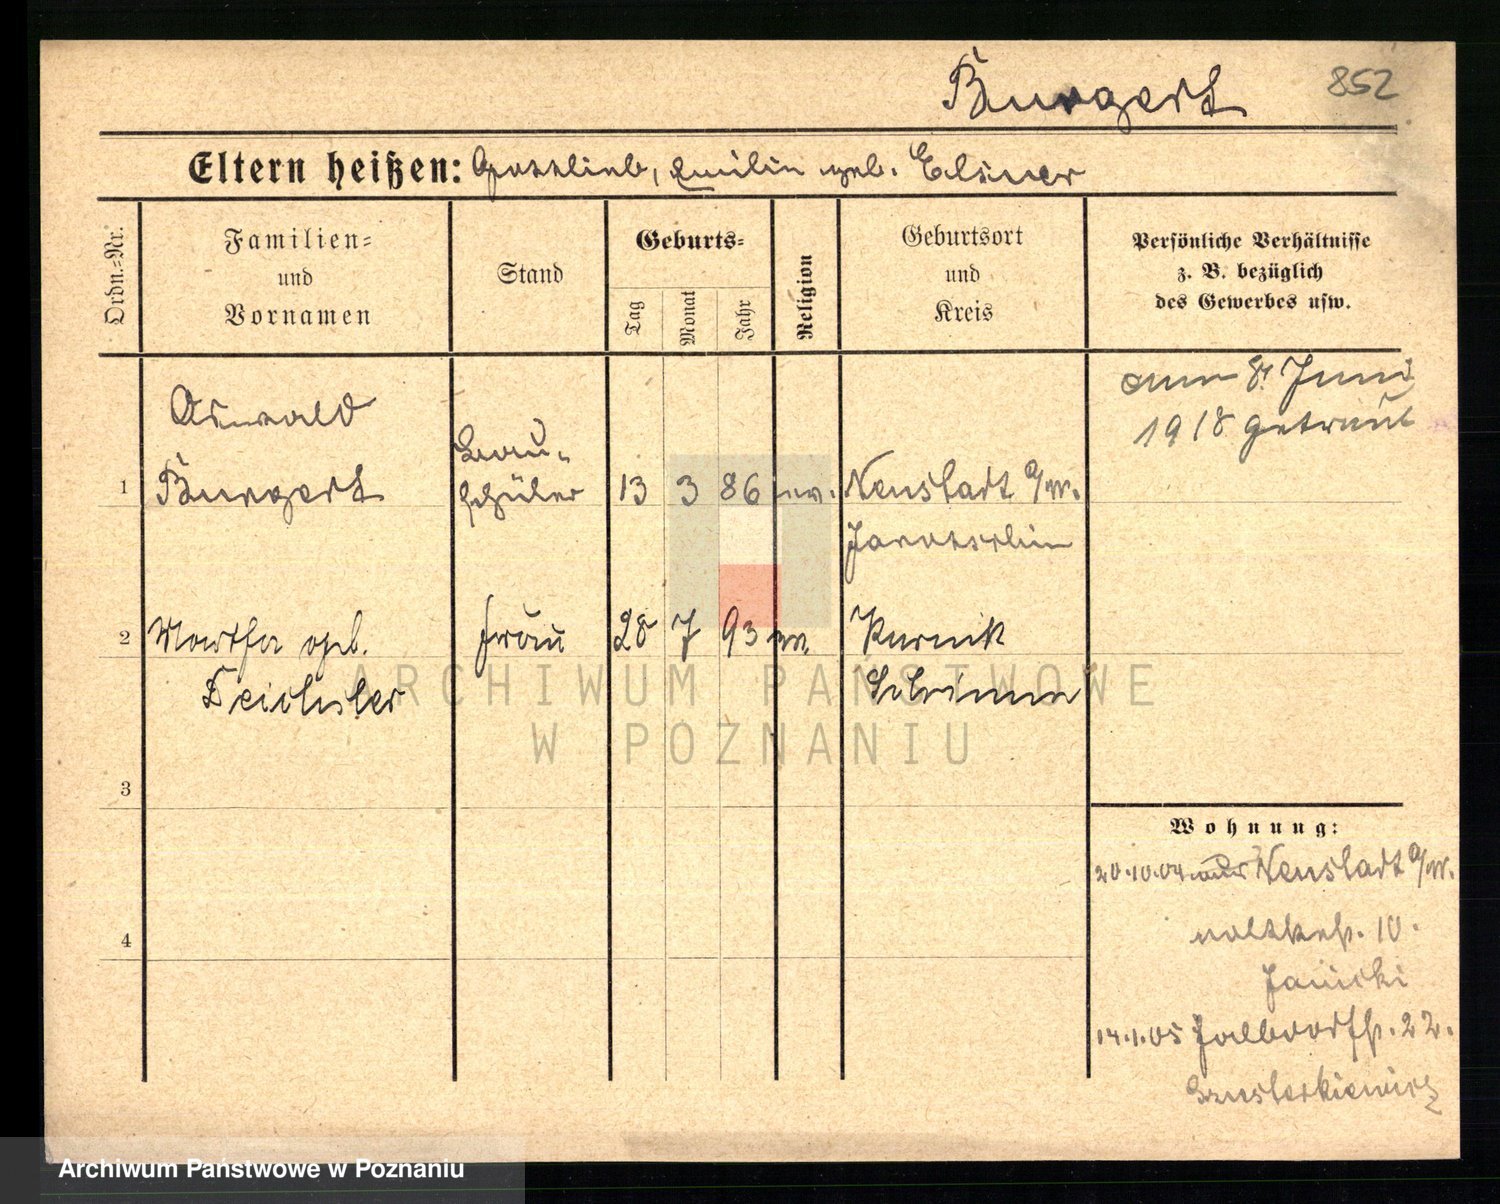 Burgert
852
Eltern heißen: Gottlieb, Emilie geb. Elsner
Ordn.-Nr.
Familien-
und
Vornamen
Stand
Geburts-
Tag
Monat
Jahr
Religion
Geburtsort
und
Kreis
Persönliche Verhältnisse
z. B. bezüglich
des Gewerbes usw.
am 8. Juni
1918 getraut
Oswald
Bau-
1 Burgert schüler 13 3 86 ev. Neustadt a/W.
Jarotschin
2 Martha geb. Frau 28 7 93 ev. Kurnik
Teichler Schrimm
3
4
Wohnung:
20.10.04 Neustadt a/W.
10.
14.1.05 22.
ARCHIWUM PAŃSTWOWE
W POZNANIU
Archiwum Państwowe w Poznaniu